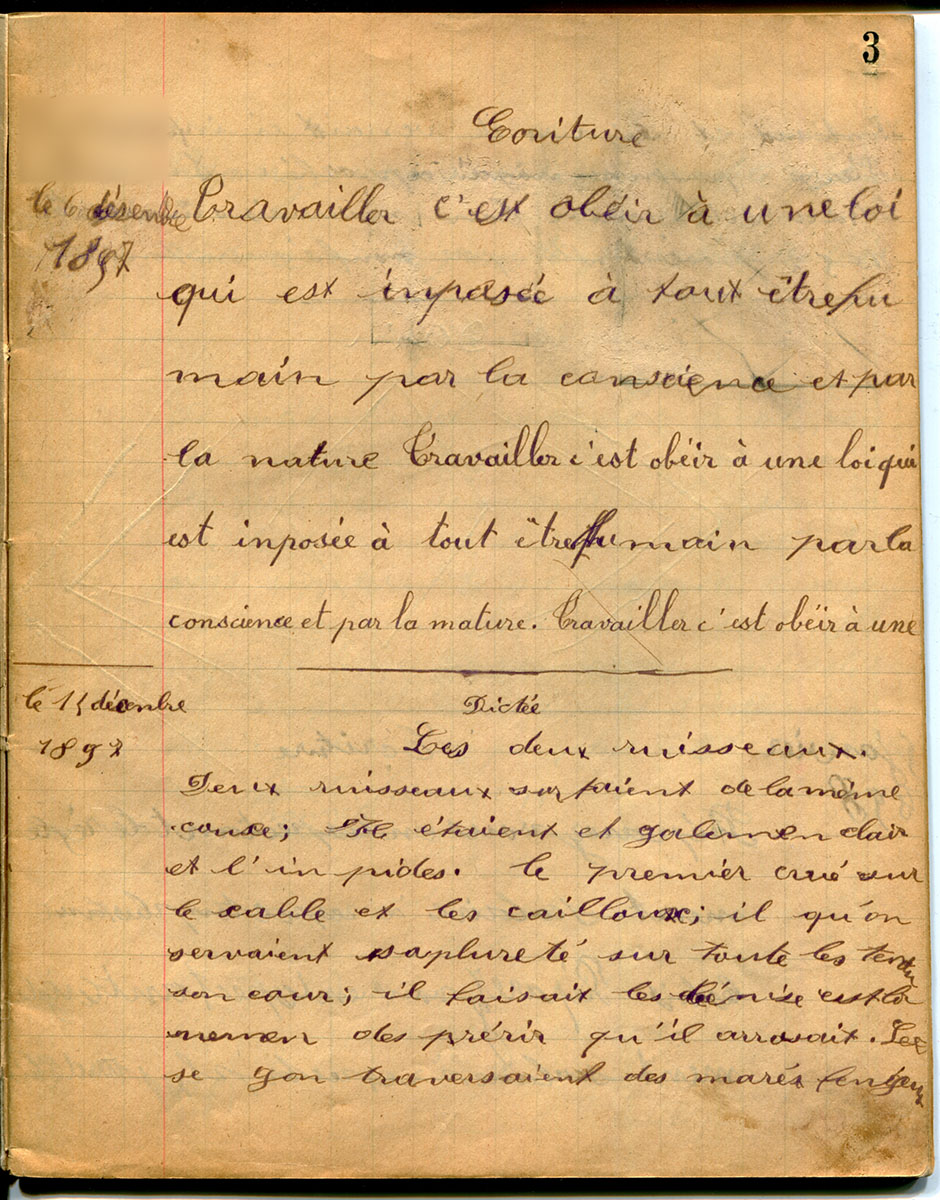 3
Ecriture
le 6 désenbre
1897
Travailler c'est obéir à une loi
qui est inposée à tout être hu
main par la conscience et par
la nature Travailler c'est obéir à une loi qui
est inposée à tout être humain par la
conscience et par la mature. Travailler c'est obéir à une
le 15 décenbre
1897
Dictée
Les deux ruisseaux.
Deux ruisseaux sortaient de la même
couse; Il étaient et galemen clair
et l'in pides. le premier crué sur
le sable et les cailloux; il qu'on
servaient sa plureté sur toute les tendu
son cour; il faisait les
nemen des prérir qu'il arrosait. Le
se gon traversaient des marés fengeux